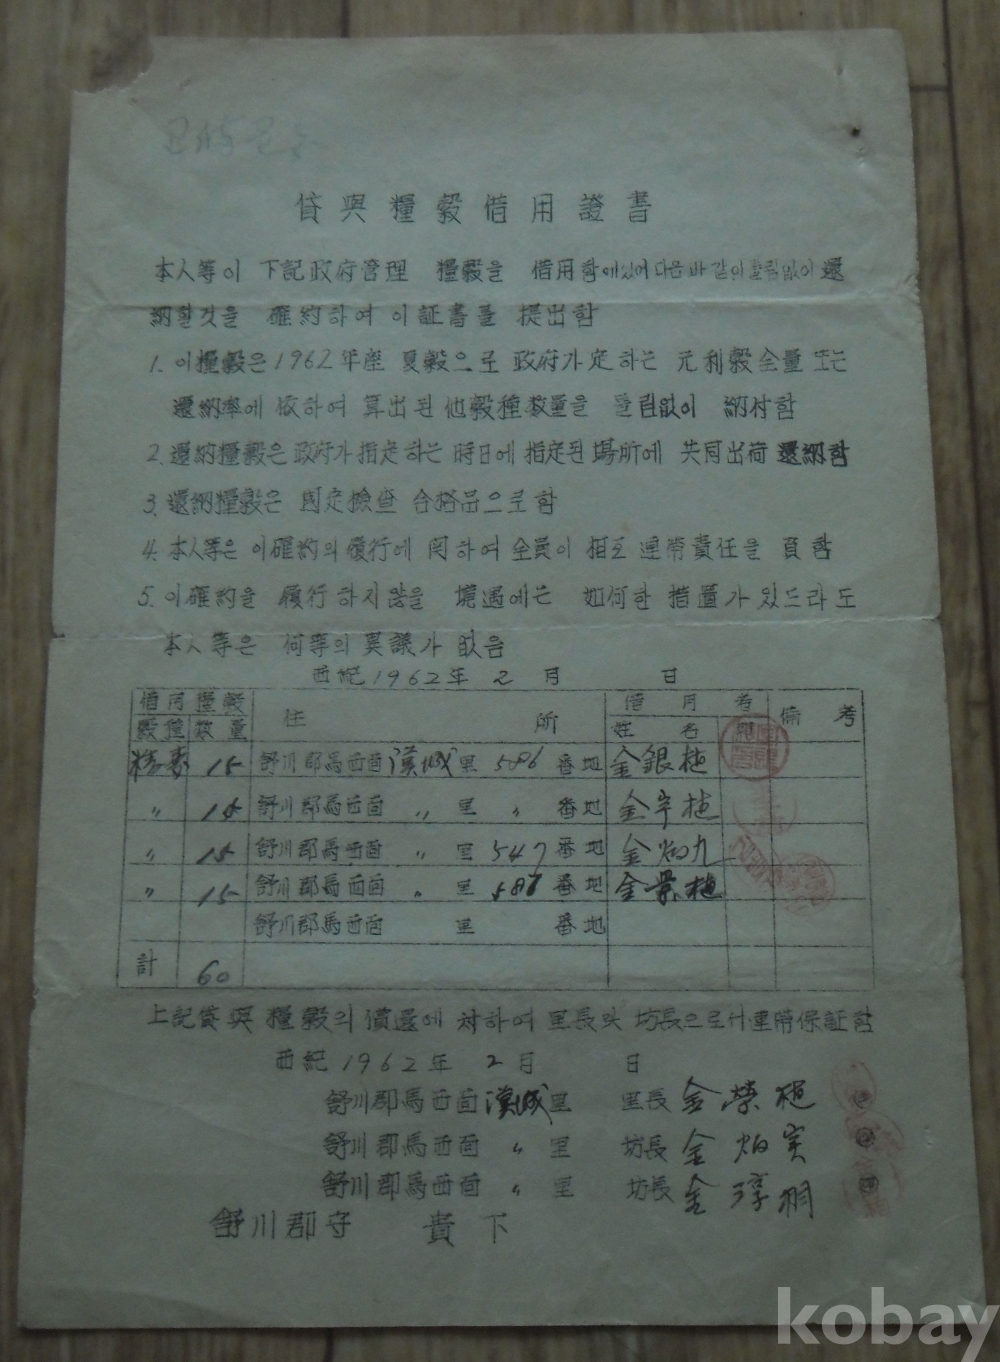 貸與糧穀借用證書
本人等이 下記政府管理 糧穀을 借用함에있어 다음과 같이 틀림없이 還
納할것을 確約하여 이証書를 提出함
1. 이糧穀은 1962年産 夏穀으로 政府가 定하는 元利穀全量 또는
還納率에 依하여 算出된 他穀種数量을 틀림없이 納付함
2. 還納糧穀은 政府가 指定하는 時日에 指定된 場所에 共同出荷 還納함
3. 還納糧穀은 国定檢查 合格品으로함
4. 本人等은 이確約의 履行에 関하여 全員이 相互 連帶責任을 負함
5. 이確約을 履行하지않을 境遇에는 如何한 措置가 있드라도
本人等은 何等의 異議가 없음
西紀 1962年 2 月 日
借用糧穀 住 所 借 用 者 備 考
穀種 数量 姓 名
15 舒川郡馬西面 漢城 里 586 番地 金銀植
〃 15 舒川郡馬西面 〃 里 〃 番地 金宇植
〃 15 舒川郡馬西面 〃 里 547 番地 金炳九
〃 15 舒川郡馬西面 〃 里 番地 金景植
舒川郡馬西面 里 番地
計 60
上記貸與 糧穀의 償還에 対하여 里長및 坊長으로서 連帶保証함
西紀 1962年 2月 日
舒川郡馬西面 漢城 里 里長 金榮植
舒川郡馬西面 〃 里 坊長 金
舒川郡馬西面 〃 里 坊長 金
舒川郡守 貴下
kobay